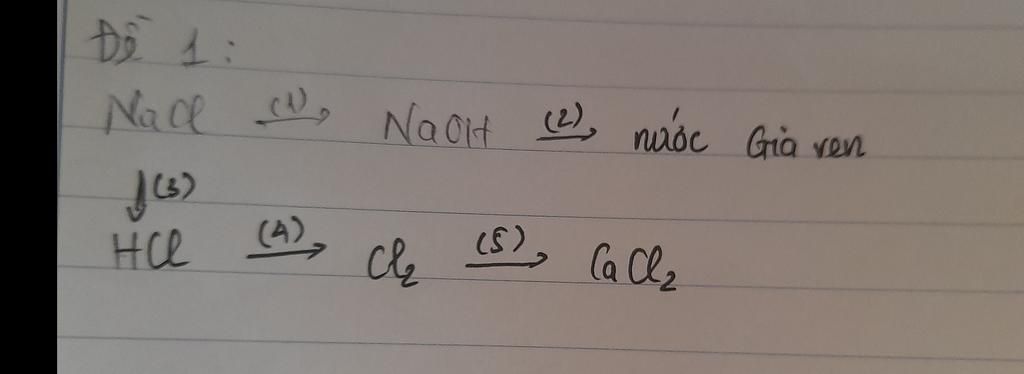 Đề 1:
NaCl (1)→ NaOH (2)→ nước Gia ven
↓(3)
HCl (4)→ Cl₂ (5)→ CaCl₂